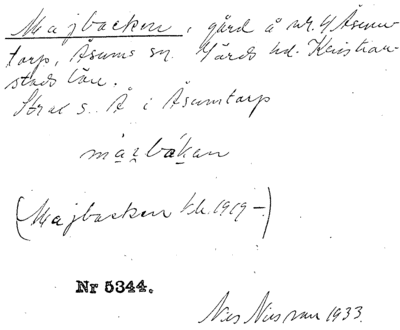 Majbacken, gård å nr. 4 Åsum-
torp, Åsums sn. Färds hd. Kristian-
stads län.
Strax s. Å i Åsumtorp
(Majbacken kb. 1919 –)
Nr 5344.
Nils Nilsson 1933.